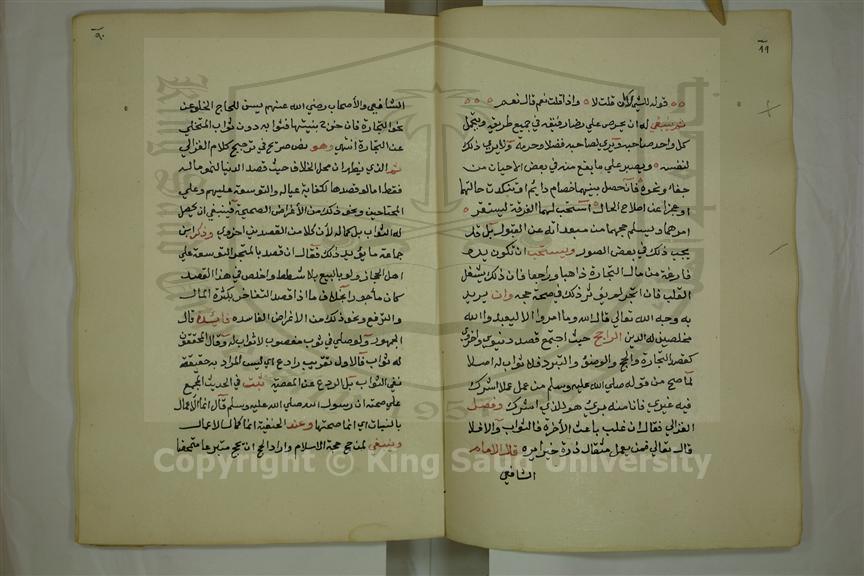 ٨٩
قوله للشيء لان قلت لا واذا قلت نعم قال نعم
ثم ينبغي له ان يحرص على رضا رفيقه في جميع طريقه ويتحمل
كل واحد صاحبه ويرى لصاحبه فضلا وحرمة ولا يرى ذلك
لنفسه ويصبر على ما يقع منه في بعض الاحيان من
جفاء ونحوه فان حصل بينهما خصام دايم او تنكدت حالتهما
او عجزا عن اصلاح الحال استحب لهما الفرقة ليستقر
امرهما ويسلم حجهما من مبعداته عن القبول بل قد
يجب ذلك في بعض الصور ويستحب ان تكون يده
فارغة من مال التجارة ذاهبا وراجعا فان ذلك يشغل
القلب فان اتجر لم يؤثر ذلك في صحة حجه وان يريد
به وجه الله تعالى قال الله وما امروا الا ليعبدوا الله
مخلصين له الدين الراجح حيث اجتمع قصد دنيوي واخروي
كقصد التجارة والحج والوضوء والتبرد فلا ثواب له اصلا
لما صح من قوله صلى الله عليه وسلم من عمل عملا اشرك
فيه غيري فانا منه بريء هو للذي اشرك وفصل
الغزالي فقال ان غلب باعث الآخرة فالثواب والا فلا
قال تعالى فمن يعمل مثقال ذرة خيرا يره قال الامام
الشافعي
٩٠
الشافعي والاصحاب رضي الله عنهم يسن للحاج الخلو عن
نحو التجارة فان خرج بنيتهما فثوابه دون ثواب المتخلي
عن التجارة انتهى وهو نص صريح في ترجيح كلام الغزالي
ثم الذي يظهر ان محل الخلاف حيث قصد الدنيا لنمو ماله
فقط اما لو قصدها لكفاية عياله والتوسعة عليهم وعلى
المحتاجين ونحو ذلك من الاغراض الصحيحة فينبغي ان يحصل
له الثواب بكماله لان كلا من القصدين اخروي وذكر ابن
جماعة ما يؤيد ذلك فقال ان قصد بالمتجر التوسعة على
اهل الحجاز ولو بالبيع بلا شطط واخلص في هذا القصد
كان مأجورا بخلاف ما اذا قصد التفاخر بكثرة المال
والترفع ونحو ذلك من الاغراض الفاسده فايدة قال
الجمهور لو صلى في ثوب مغصوب لا ثواب له وقال المحققون
له ثواب فالاول تقريب رادع اي ليس المراد به حقيقة
نفي الثواب بل الردع عن المعصية ثبت في الحديث المجمع
على صحته ان رسول الله صلى الله عليه وسلم قال انما الاعمال
بالنيات اي انما صحتها وعند الحنفية انما كمالات الاعمال
وينبغي لمن حج حجة الاسلام واراد الحج ان يحج متبرعا متمحضا
Copyright © King Saud University
1957